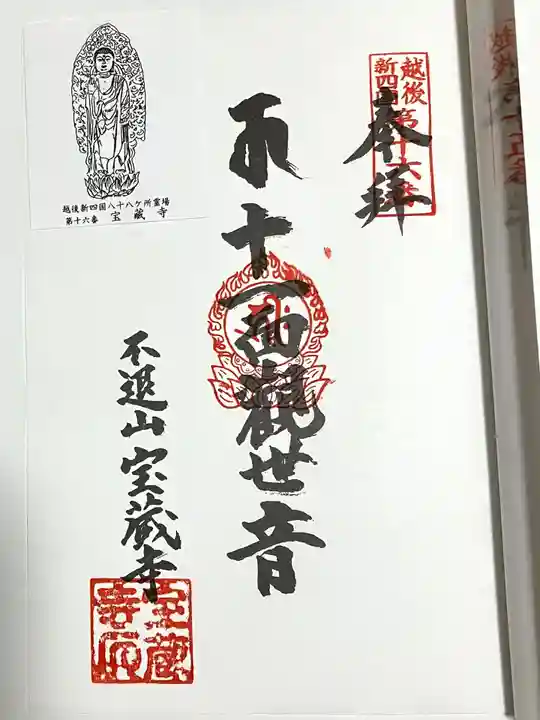 越後
新四国第十六番
奉拝
十一面觀世音
不退山宝蔵寺
越後新四国八十八ケ所霊場
第十六番 宝蔵寺